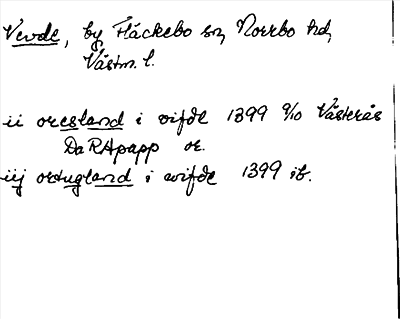 Vevde, by Fläckebo sn, Norrbo hd,
Västm. l.
ii oresland i vifdæ 1399 9/10 Västerås
Da RApapp or.
iij ortugland i wifdæ 1399 ib.